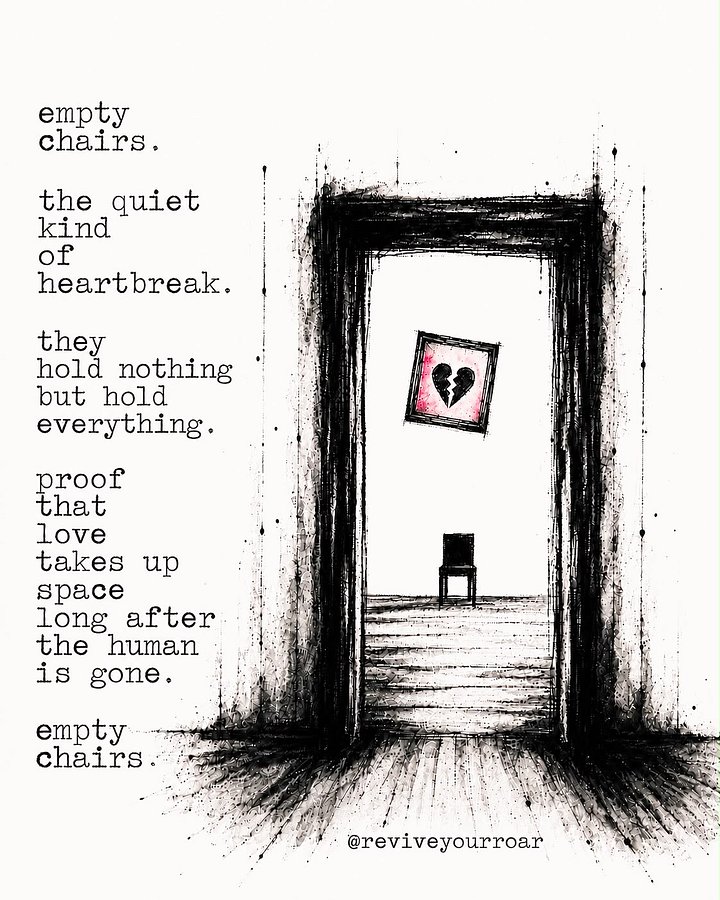 empty
chairs.
the quiet
kind
of
heartbreak.
they
hold nothing
but hold
everything.
proof
that
love
takes up
space
long after
the human
is gone.
empty
chairs.
@reviveyourroar